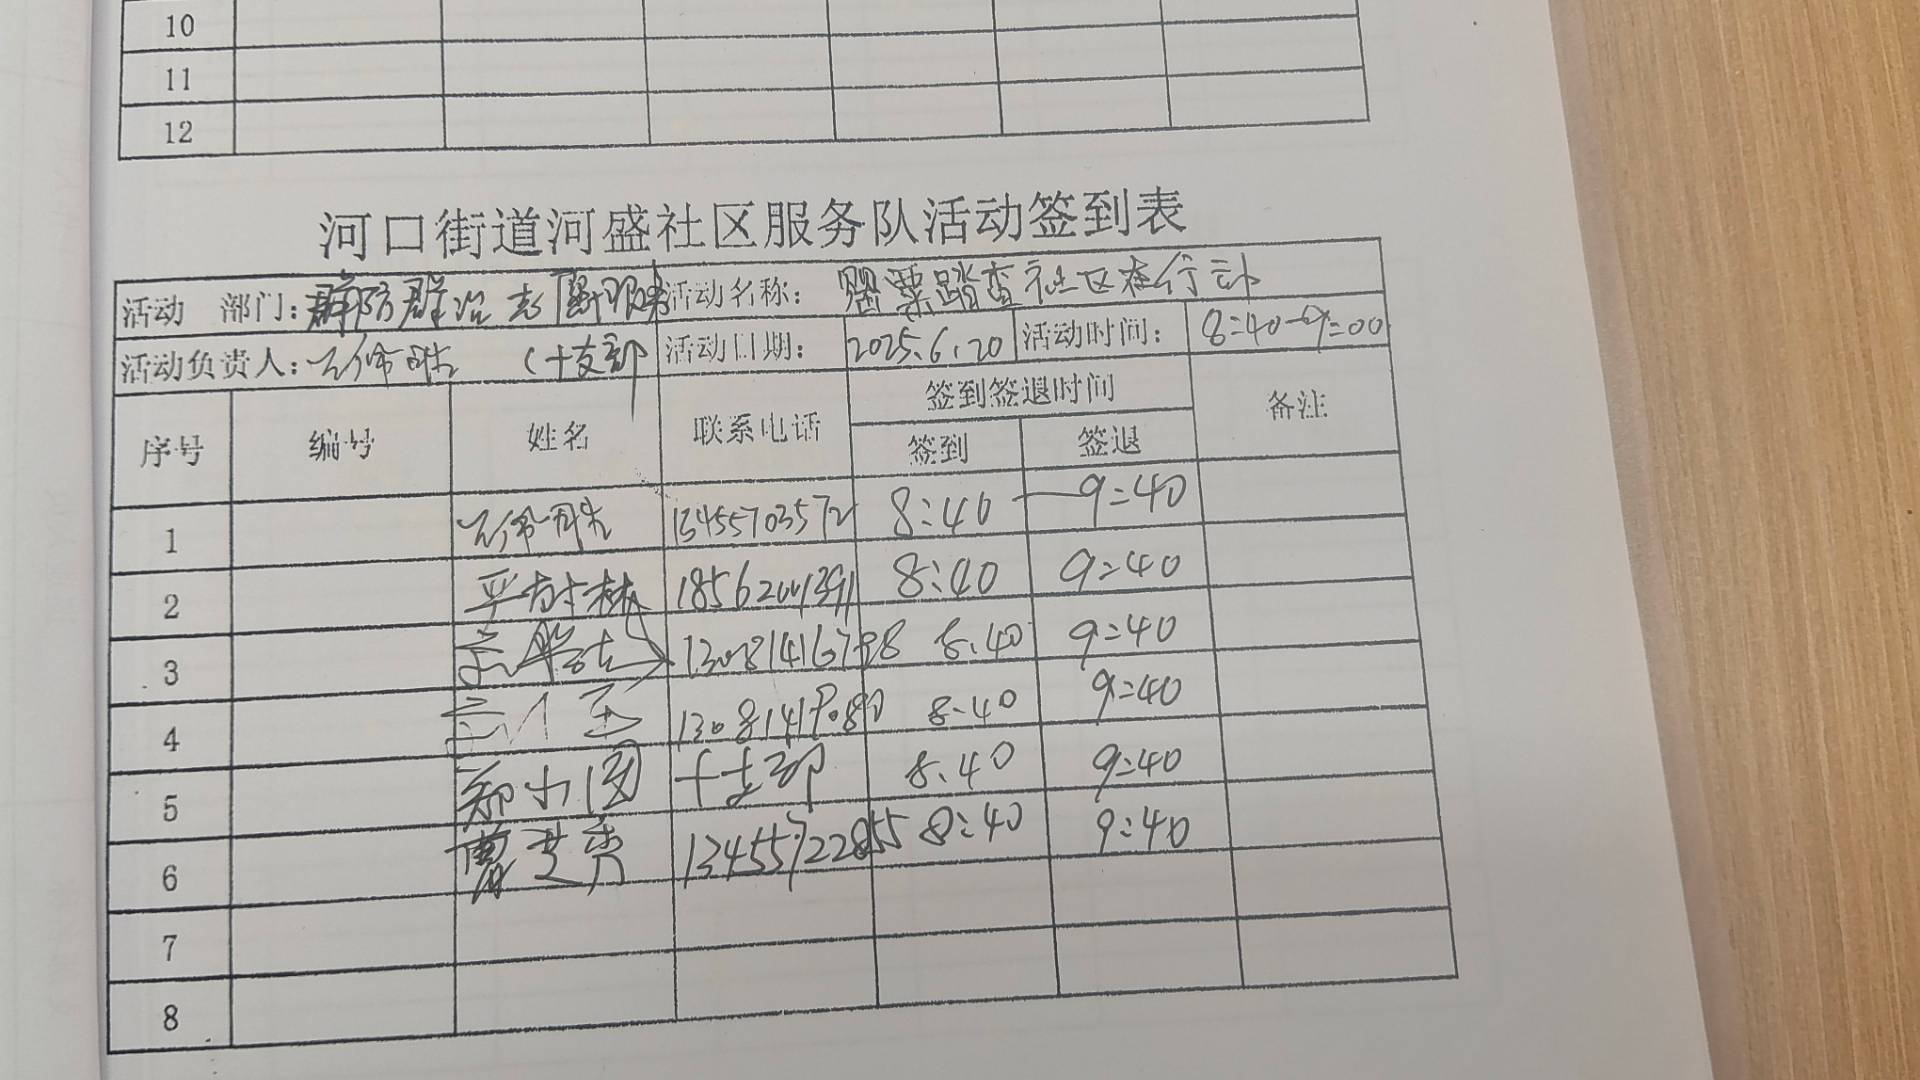 10
11
12
河口街道河盛社区服务队活动签到表
活动 部门: 群防群治 活动名称: 罂粟踏查社区在行动
活动负责人: (十支部 活动日期: 2025.6.20 活动时间: 8:40-9:00
序号 编号 姓名 联系电话 签到签退时间 备注
签到 签退
1 13455703572 8:40 — 9:40
2 平树林 8:40 9:40
3 8.40 9:40
4 8.40 9:40
5 郑小团 十支部 8.40 9:40
6 曹芝秀 13455722855 8:40 9:40
7
8